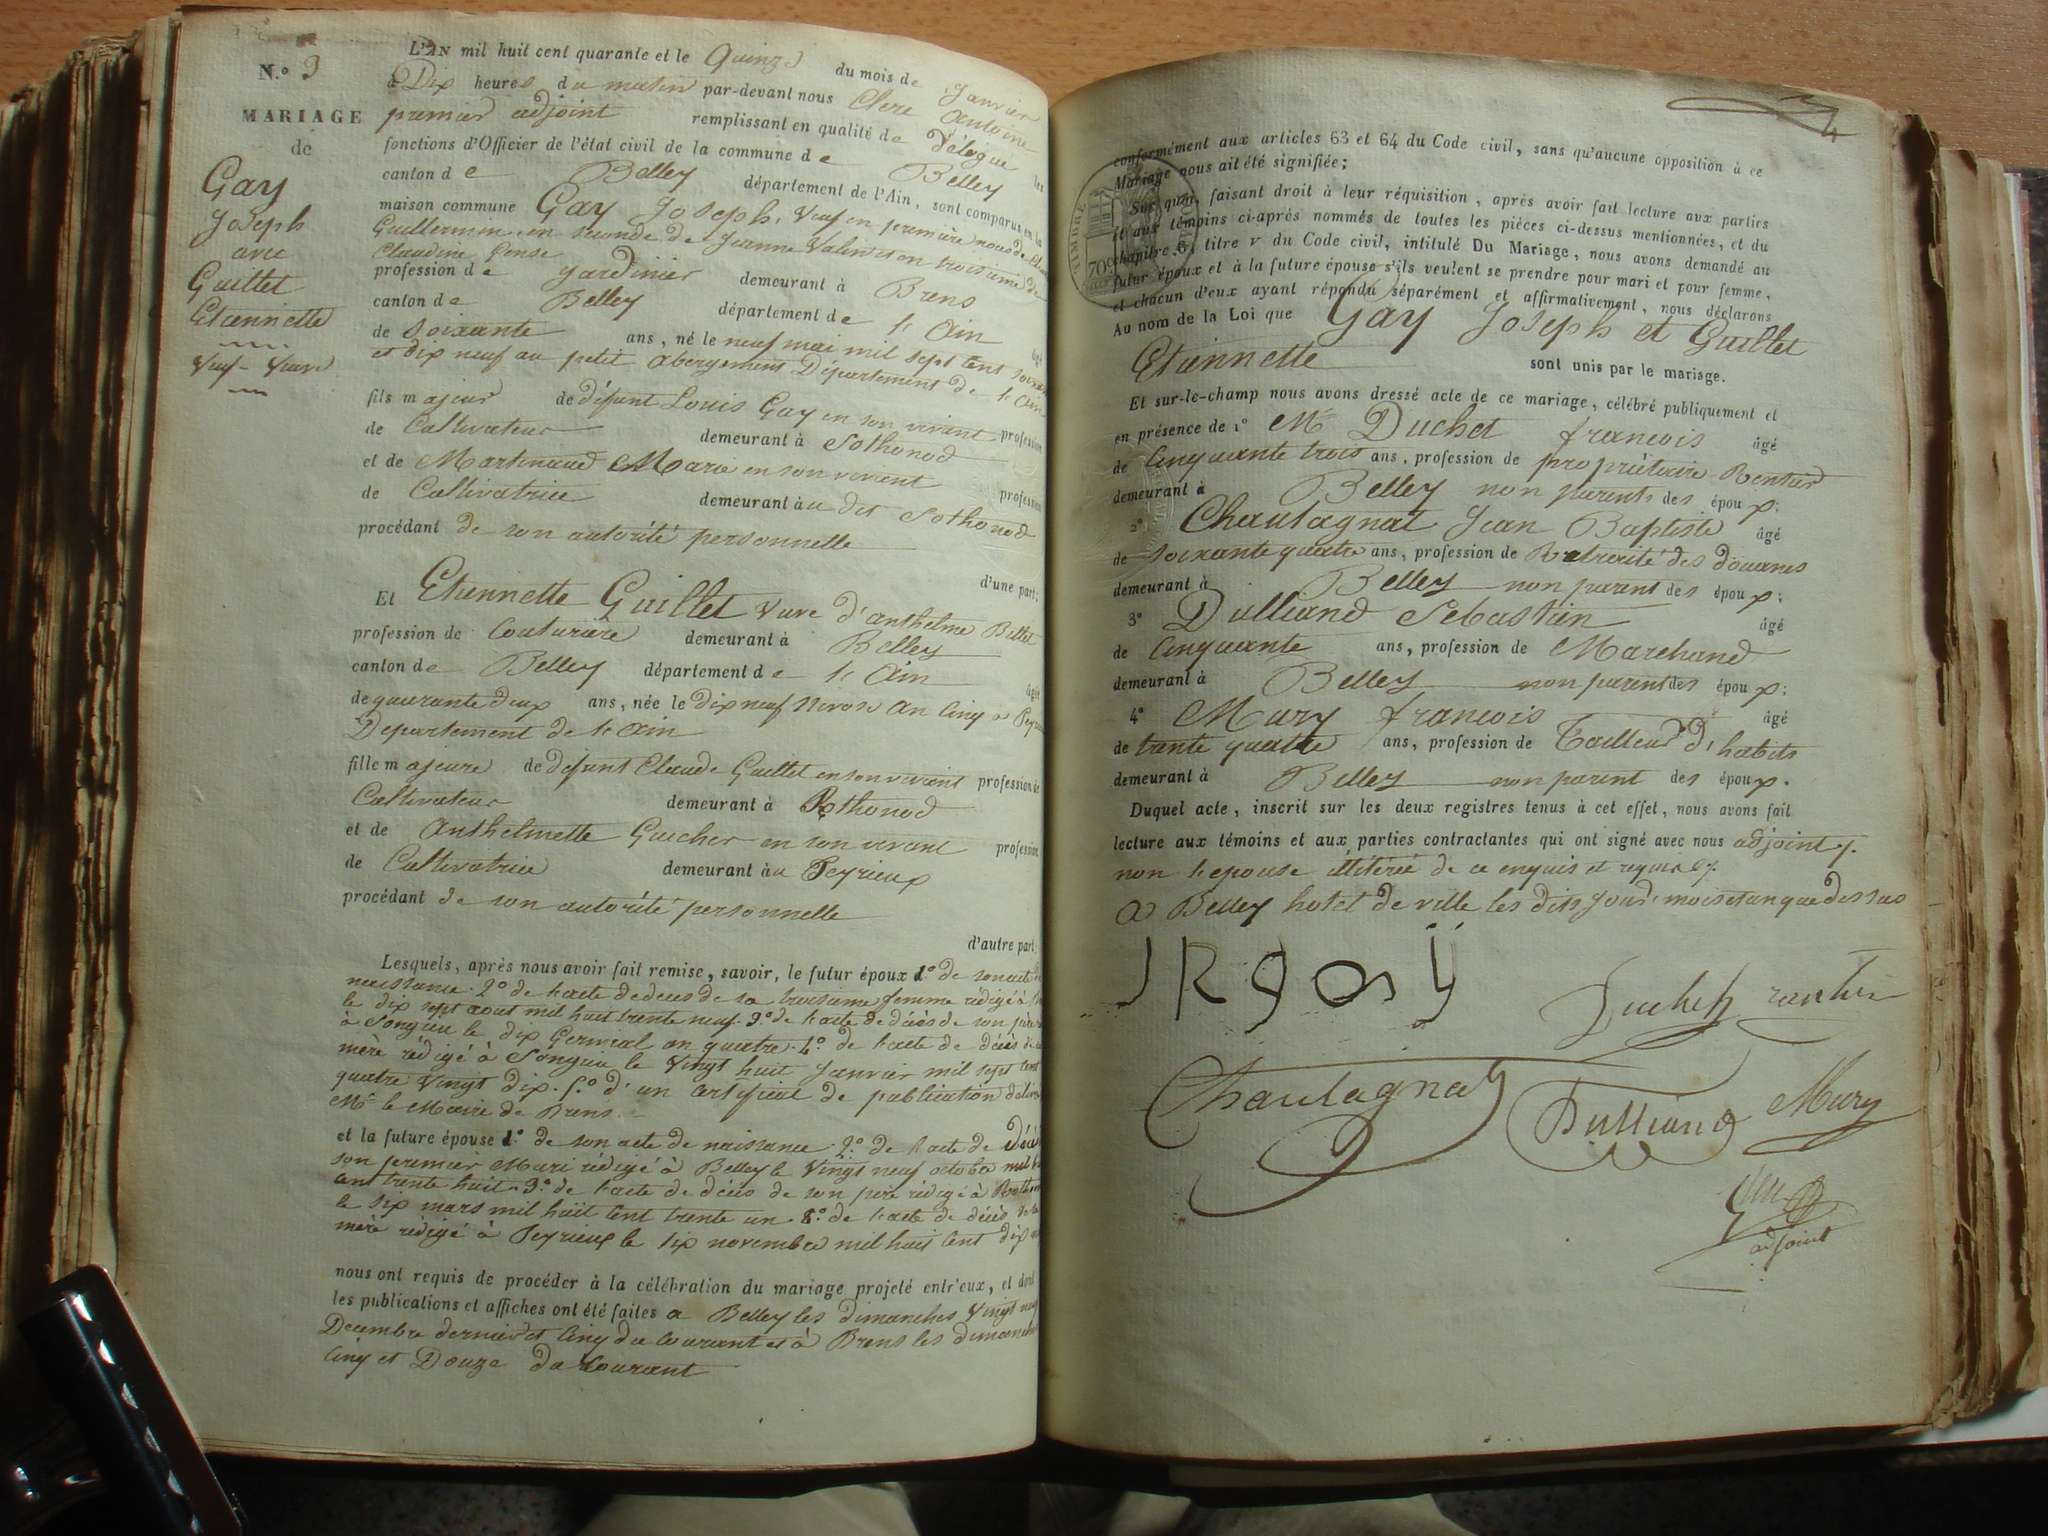 N.º 3
MARIAGE
de
Gay
Joseph
avec
Guillet
Etiennette
Veuf - Veuve
L'AN mil huit cent quarante et le Quinze du mois de Janvier
à Dix heures du matin par-devant nous Clerc Antoine
premier adjoint remplissant en qualité de Délégué les
fonctions d'Officier de l'état civil de la commune de Belley
canton de Belley département de l'Ain, sont comparus en la
maison commune Gay Joseph, Veuf en première noces de
Guillermin en seconde de Jeanne Valentin en troisieme de
Claudine Pense
profession de Jardinier demeurant à Brens
canton de Belley département de l'Ain âgé
de soixante ans, né le neuf mai mil sept cent soixante
et dix neuf au petit abergement Département de l'Ain
fils majeur de défunt Louis Gay en son vivant profession
de Cultivateur demeurant à Sothonod
et de Martinaud Marie en son vivant profession
de Cultivatrice demeurant au dit Sothonod
procédant de son autorité personnelle
d'une part;
Et Etiennette Guillet Veuve d'anthelme Billet
profession de Couturière demeurant à Belley
canton de Belley département de l'Ain âgée
de quarante deux ans, née le dix neuf Nivose an Cinq à Peyrieu
Departement de l'Ain
fille majeure de défunt Claude Guillet en son vivant profession de
Cultivateur demeurant à Rothonod
et de Anthelmette Guicher en son vivant profession
de Cultivatrice demeurant à Peyrieux
procédant de son autorité personnelle
d'autre part.
Lesquels, après nous avoir fait remise, savoir, le futur époux 1.º de son acte de
naissance. 2º de l'acte de deces de sa troisieme femme rédigé à
le dix sept aout mil huit trente neuf. 3.º de l'acte de décès de son père
à Songieu le dix Germinal an quatre. 4.º de l'acte de décès de sa
mère rédigé à Songieu le Vingt huit Janvier mil sept cent
quatre Vingt dix. 5.º d'un certificat de publication délivré
Mr le Maire de Brens
et la future épouse 1.º de son acte de naissance. 2.º de l'acte de décès
son premier Mari rédigé à Belley le Vingt neuf octobre mil huit
cent trente huit. 3.º de l'acte de décès de son père rédigé à Rothonod
le six mars mil huit cent trente un. 4.º de l'acte de décès de sa
mère rédigé à Peyrieux le six novembre mil huit cent dix
nous ont requis de procéder à la célébration du mariage projeté entr'eux, et dont
les publications et affiches ont été faites a Belley les dimanches Vingt neuf
Decembre dernier et Cinq du Courant et à Brens les dimanches
Cinq et Douze du Courant
conformément aux articles 63 et 64 du Code civil, sans qu'aucune opposition à ce
Mariage nous ait été signifiée;
Sur quoi, faisant droit à leur réquisition, après avoir fait lecture aux parties
et aux témoins ci-après nommés de toutes les pièces ci-dessus mentionnées, et du
chapitre 6, titre v du Code civil, intitulé Du Mariage, nous avons demandé au
futur époux et à la future épouse s'ils veulent se prendre pour mari et pour femme,
et chacun d'eux ayant répondu séparément et affirmativement, nous déclarons
Au nom de la Loi que Gay Joseph et Guillet
Etiennette sont unis par le mariage.
Et sur-le-champ nous avons dressé acte de ce mariage, célébré publiquement et
en présence de 1º Mr Duchet françois âgé
de Cinquante trois ans, profession de propriétaire Rentier
demeurant à Belley non parents des époux;
2º Chautagnat Jean Baptiste âgé
de soixante quatre ans, profession de Retraité des douanes
demeurant à Belley non parent des époux;
3º Dulliand Sebastien âgé
de Cinquante ans, profession de Marchand
demeurant à Belley non parent des époux;
4º Mury françois âgé
de trente quatre ans, profession de Tailleur d'habits
demeurant à Belley non parent des époux.
Duquel acte, inscrit sur les deux registres tenus à cet effet, nous avons fait
lecture aux témoins et aux parties contractantes qui ont signé avec nous adjoint
non l'epouse illitéré de ce enquis et requis
A Belley hotel de ville les dits jour, mois et an que dessus
JR gay
Duchet rentier
Chautagnat
Dulliand
Mury
adjoint
TIMBRE
70c